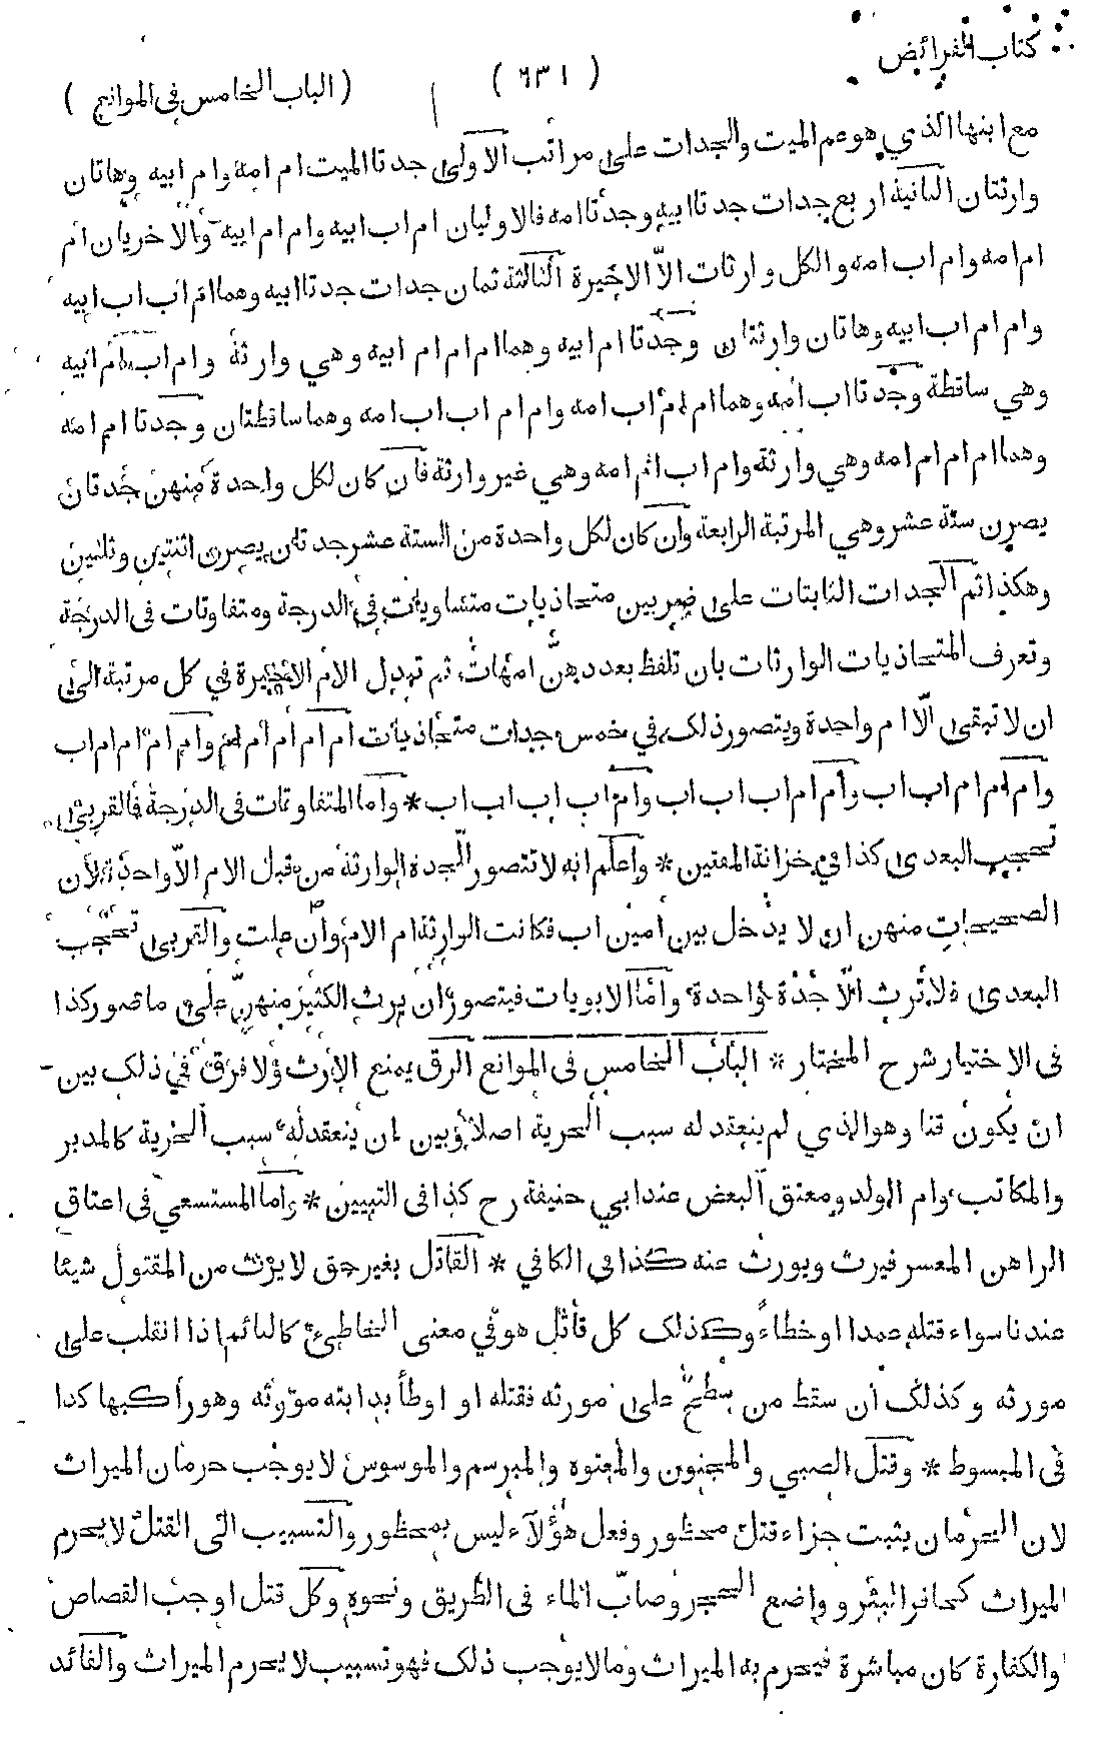 كتاب الفرائض
( ٦٣١ )
( الباب الخامس فى الموانع )
مع ابنها الذي هو عم الميت والجدات على مراتب الاولى جدتا الميت ام امه وام ابيه وهاتان
وارثتان الثانية اربع جدات جدتا ابيه وجدتا امه فالاوليان ام اب ابيه وام ام ابيه والاخريان ام
ام امه وام اب امه والكل وارثات الّا الاخيرة الثالثة ثمان جدات جدتا ابيه وهما ام اب اب ابيه
وام ام اب ابيه وهاتان وارثتان وجدتا ام ابيه وهما ام ام ام ابيه وهي وارثة وام اب ام ابيه
وهي ساقطة وجدتا اب امه وهما ام ام اب امه وام ام اب اب امه وهما ساقطتان وجدتا ام امه
وهما ام ام ام امه وهي وارثة وام اب ام امه وهي غير وارثة فان كان لكل واحدة منهن جدتان
يصرن ستة عشر وهي المرتبة الرابعة وان كان لكل واحدة من الستة عشر جدتان يصرن اثنتين وثلثين
وهكذا ثم الجدات الثابتات على ضربين متحاذيات متساويات فى الدرجة ومتفاوتات فى الدرجة
وتعرف المتحاذيات الوارثات بان تلفظ بعددهنّ امهات ثم تبدل الام الاخيرة في كل مرتبة الى
ان لا تبقى الّا ام واحدة ويتصور ذلك في خمس جدات متحاذيات ام ام ام ام ام وام ام ام ام اب
وام ام ام اب اب وام ام اب اب اب وام اب اب اب اب * واما المتفاوتات فى الدرجة فالقربى
تحجب البعدى كذا في خزانة المفتين * واعلم انه لا تتصور الجدة الوارثة من قبل الام الّا واحدة لان
الصحيحات منهن ان لا يدخل بين امين اب فكانت الوارثة ام الام وان علت والقربى تحجب
البعدى فلا ترث الّا جدة واحدة واما الابويات فيتصور ان يرث الكثير منهنّ على ما تصور كذا
فى الاختيار شرح المختار * الباب الخامس فى الموانع الرق يمنع الارث ولا فرق في ذلك بين
ان يكون قنا وهو الذي لم ينعقد له سبب الحرية اصلا وبين ان ينعقد له سبب الحرية كالمدبر
والمكاتب وام الولد ومعتق البعض عند ابي حنيفة رح كذا فى التبيين * واما المستسعي فى اعتاق
الراهن المعسر فيرث ويورث عنه كذا فى الكافي * القاتل بغير حق لا يرث من المقتول شيئا
عندنا سواء قتله عمدا او خطاءً وكذلك كل قاتل هو في معنى الخاطئ كالنائم اذا انقلب على
مورثه وكذلك ان سقط من سطح على مورثه فقتله او اوطأ بدابته مورثه وهو راكبها كذا
فى المبسوط * وقتل الصبي والمجنون والمعتوه والمبرسم والموسوس لا يوجب حرمان الميراث
لان الحرمان يثبت جزاء قتل محظور وفعل هؤلآء ليس بمحظور والتسبيب الى القتل لا يحرم
الميراث كحافر البئر وواضع الحجر وصابّ الماء فى الطريق ونحوه وكل قتل اوجب القصاص
والكفارة كان مباشرة فيحرم به الميراث وما لا يوجب ذلك فهو تسبيب لا يحرم الميراث والقائد